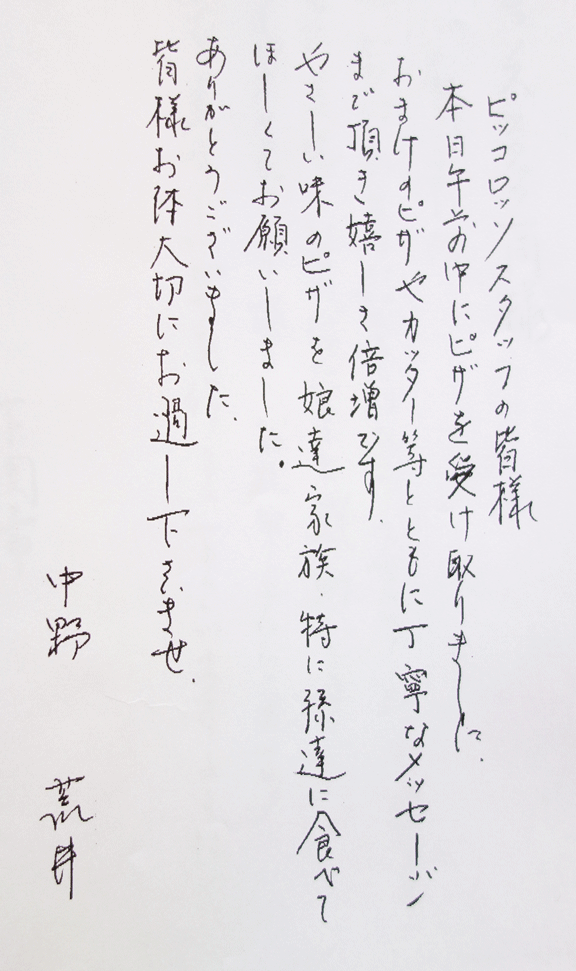 ピッコロッソスタッフの皆様
本日午前中にピザを受け取りました.
おまけのピザやカッター等とともに丁寧なメッセージ
まで頂き嬉しさ倍増です.
やさしい味のピザを娘達家族.特に孫達に食べて
ほしくてお願いしました。
ありがとうございました.
皆様お体大切にお過し下さいませ.
中野 荒井